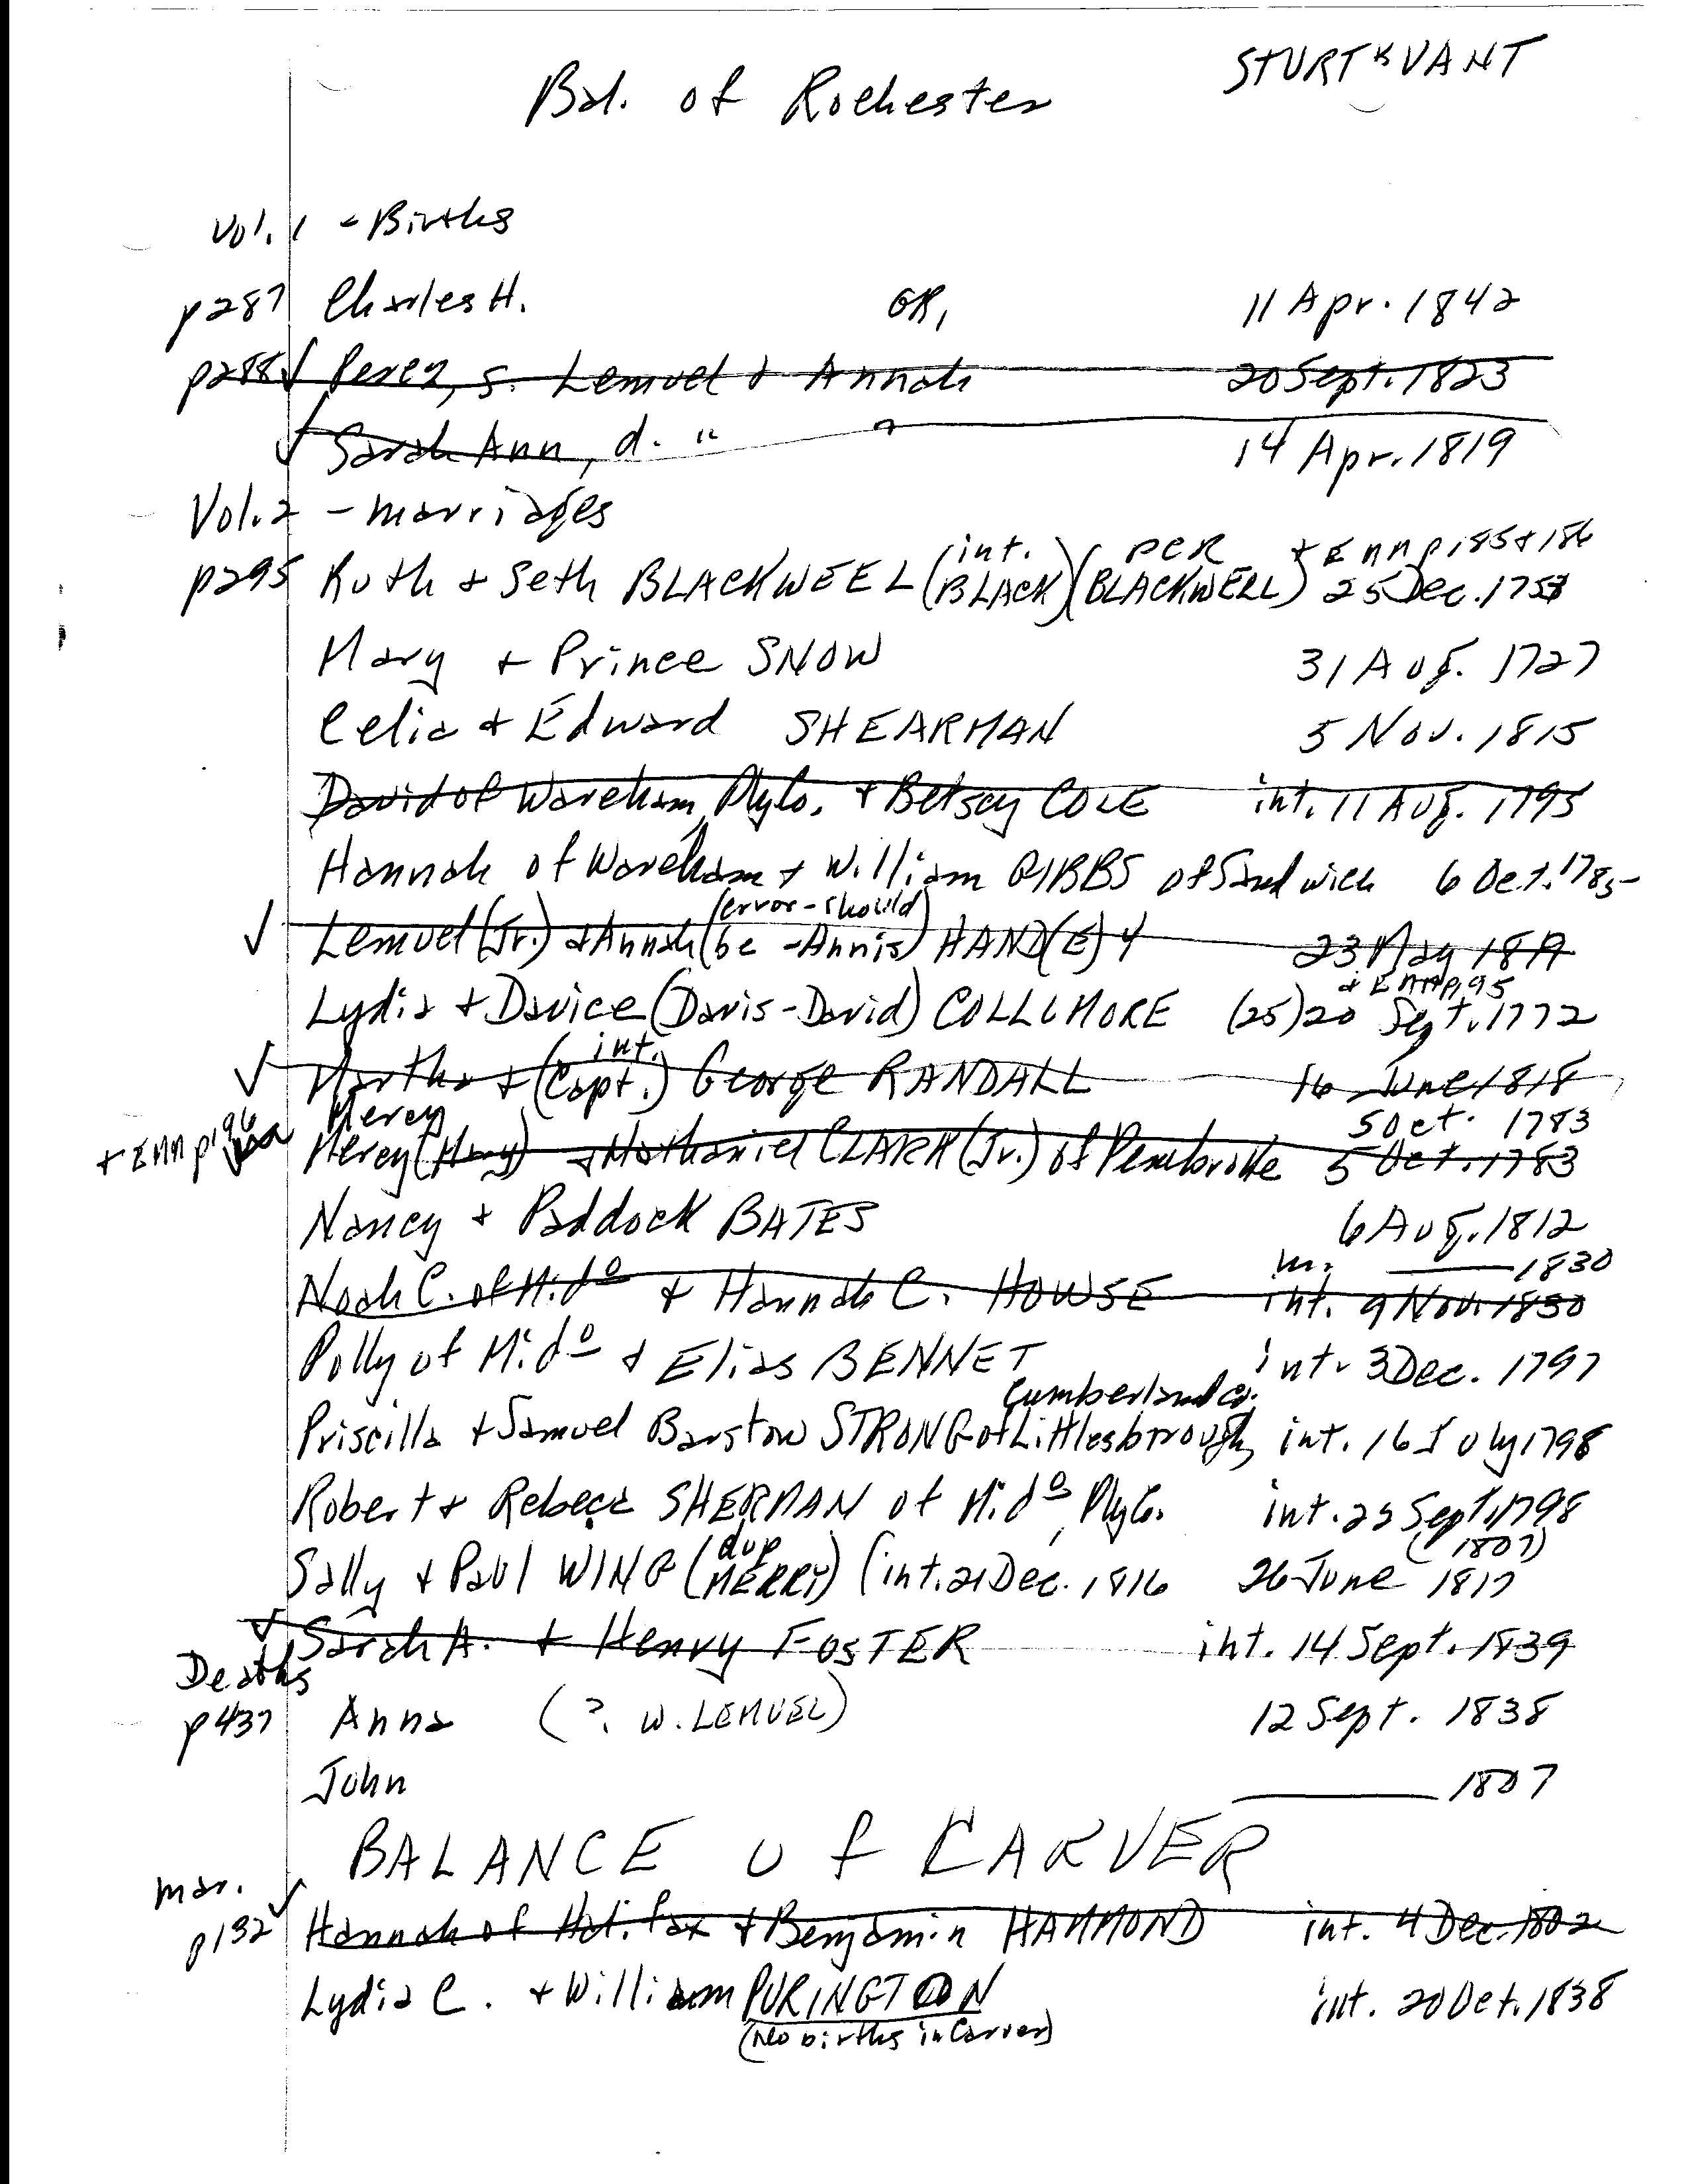 STURTEVANT
Bal. of Rochester
Vol. 1 - Births
p287 Charles H. GR, 11 Apr. 1842
p288 ✓ Perez, s. Lemuel & Annah 20 Sept. 1823
✓ Sarah Ann, d. " " 14 Apr. 1819
Vol. 2 - marriages
int. PCR + EMM p185 & 186
p295 Ruth & Seth BLACKWEEL (BLACK) (BLACKWELL) 25 Dec. 1757
Mary & Prince SNOW 31 Aug. 1727
Celia & Edward SHEARMAN 5 Nov. 1815
David of Wareham, PlyCo. & Betsey COLE int. 11 Aug. 1795
Hannah of Wareham & William GIBBS of Sandwich 6 Oct. 1785
(error - should
✓ Lemuel (Jr.) & Annah be - Annis) HAND(E)Y 23 May 1817
+ EMM p195
Lydia & Davice (Davis-David) COLLLMORE (25) 20 Sept. 1772
int.
✓ Martha & (Capt.) George RANDALL 16 June 1818
Mercy 5 Oct. 1783
+ EMM p196 Mercy (Mary) & Nathaniel CLARK (Jr.) of Pembroke 5 Oct. 1783
Nancy & Paddock BATES 6 Aug. 1812
m. 1830
Noah C. of Mido & Hannah C. HOWSE int. 9 Nov. 1830
Polly of Mido & Elias BENNET int. 3 Dec. 1797
Cumberland Co.
Priscilla & Samuel Barstow STRONG of Littlesborrough, int. 16 July 1798
Robert & Rebeca SHERMAN of Mido, PlyCo. int. 23 Sept. 1798
dup (1807)
Sally & Paul WING (MERRY) (int. 21 Dec. 1816 26 June 1817
✓ Sarah A. & Henry FOSTER int. 14 Sept. 1839
Deaths
p437 Anna (?. W. LEMUEL) 12 Sept. 1838
John 1807
BALANCE of CARVER
mar.
p132 ✓ Hannah of Halifax & Benjamin HAMMOND int. 4 Dec. 1802
Lydia C. & William PURINGTON int. 20 Oct. 1838
(No births in Carver)